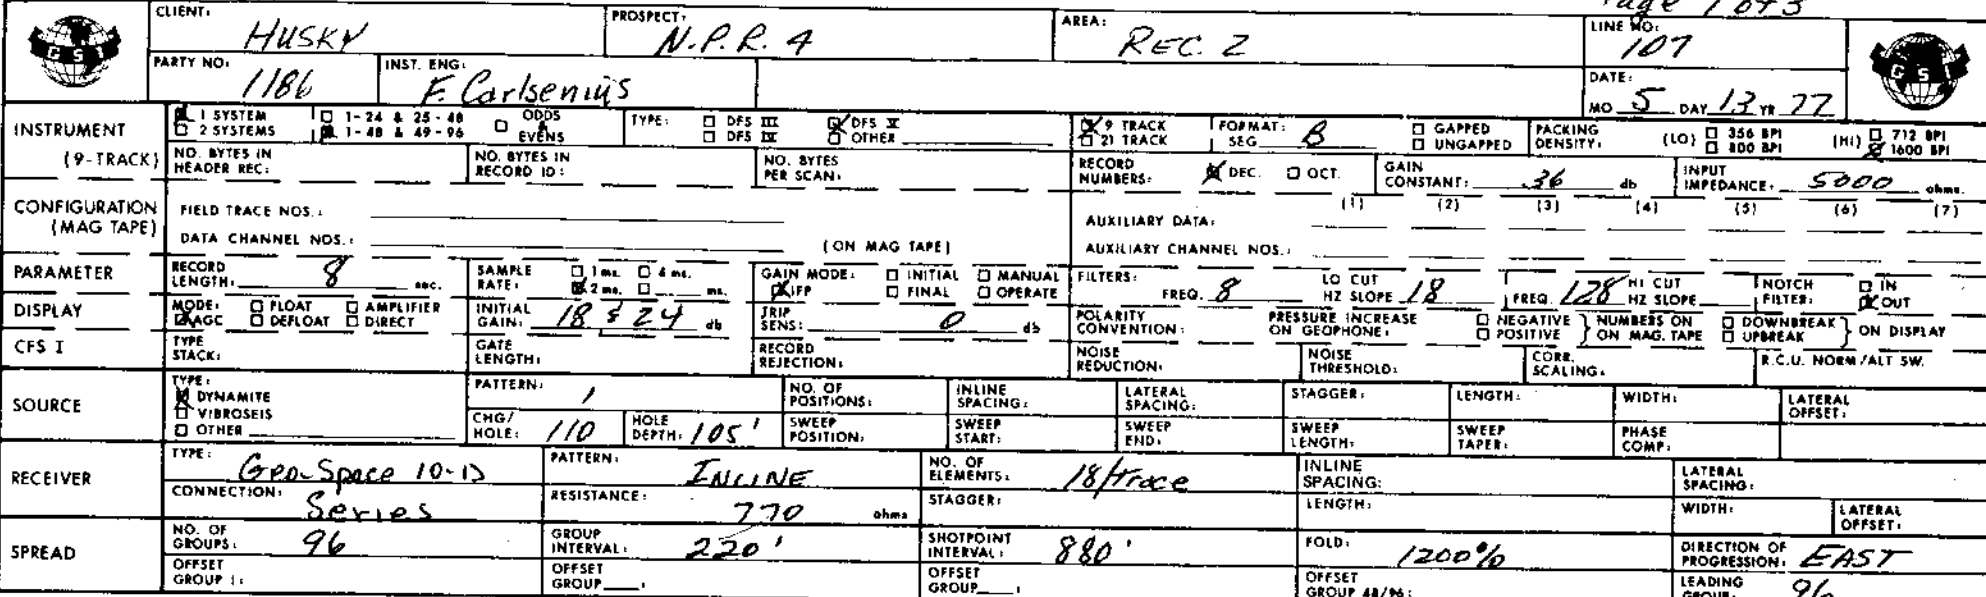 Page 1 of 3
CLIENT: HUSKY PROSPECT: N.P.R. 4 AREA: REC. 2 LINE NO: 107
PARTY NO: 1186 INST. ENG: F. Carlsenius DATE: MO 5 DAY 13 YR 77
GSI GSI
INSTRUMENT (9-TRACK) 1 SYSTEM 2 SYSTEMS 1-24 & 25-48 1-48 & 49-96 ODDS & EVENS TYPE: DFS III DFS IV DFS V OTHER 9 TRACK 21 TRACK FORMAT: SEG B GAPPED UNGAPPED PACKING DENSITY: (LO) 356 BPI 800 BPI (HI) 712 BPI 1600 BPI
NO. BYTES IN HEADER REC: NO. BYTES IN RECORD ID: NO. BYTES PER SCAN: RECORD NUMBERS: DEC. OCT. GAIN CONSTANT: 36 db INPUT IMPEDANCE: 5000 ohms.
CONFIGURATION (MAG TAPE) FIELD TRACE NOS.: AUXILIARY DATA: (1) (2) (3) (4) (5) (6) (7)
DATA CHANNEL NOS.: (ON MAG TAPE) AUXILIARY CHANNEL NOS.:
PARAMETER RECORD LENGTH: 8 sec. SAMPLE RATE: 1 ms. 4 ms. 2 ms. ms. GAIN MODE: INITIAL MANUAL IFP FINAL OPERATE FILTERS: FREQ. 8 LO CUT HZ SLOPE 18 FREQ. 128 HI CUT HZ SLOPE NOTCH FILTER: IN OUT
DISPLAY MODE: FLOAT AMPLIFIER AGC DEFLOAT DIRECT INITIAL GAIN: 18 & 24 db TRIP SENS: 0 db POLARITY CONVENTION: PRESSURE INCREASE ON GEOPHONE: NEGATIVE POSITIVE } NUMBERS ON ON MAG. TAPE DOWNBREAK UPBREAK } ON DISPLAY
CFS I TYPE STACK: GATE LENGTH: RECORD REJECTION: NOISE REDUCTION: NOISE THRESHOLD: CORR. SCALING: R.C.U. NORM/ALT SW.
SOURCE TYPE: DYNAMITE VIBROSEIS OTHER PATTERN: 1 NO. OF POSITIONS: INLINE SPACING: LATERAL SPACING: STAGGER: LENGTH: WIDTH: LATERAL OFFSET:
CHG/HOLE: 110 HOLE DEPTH: 105' SWEEP POSITION: SWEEP START: SWEEP END: SWEEP LENGTH: SWEEP TAPER: PHASE COMP:
RECEIVER TYPE: Geo-Space 10-D PATTERN: INLINE NO. OF ELEMENTS: 18/trace INLINE SPACING: LATERAL SPACING:
CONNECTION: Series RESISTANCE: 770 ohms STAGGER: LENGTH: WIDTH: LATERAL OFFSET:
SPREAD NO. OF GROUPS: 96 GROUP INTERVAL: 220' SHOTPOINT INTERVAL: 880' FOLD: 1200% DIRECTION OF PROGRESSION: EAST
OFFSET GROUP 1: OFFSET GROUP : OFFSET GROUP : OFFSET GROUP 48/96: LEADING GROUP: 96